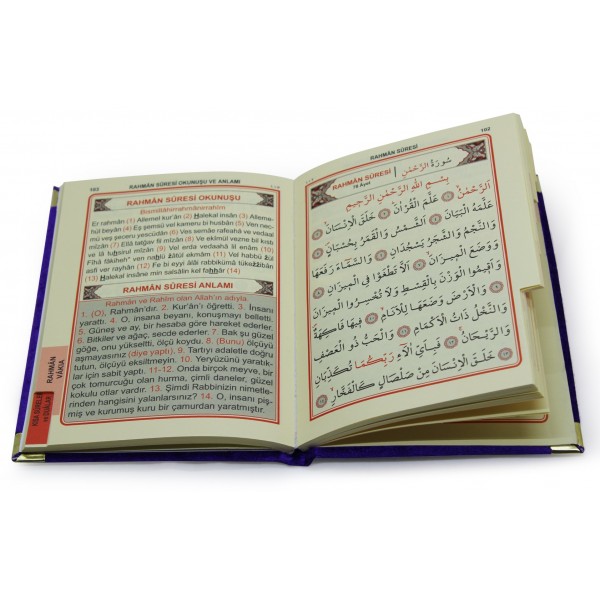 102
RAHMÂN SÛRESİ
RAHMÂN SÛRESİ
78 Âyet
سُورَةُ الرَّحْمٰنِ
بِسْمِ اللّٰهِ الرَّحْمٰنِ الرَّحِيمِ
اَلرَّحْمٰنُ عَلَّمَ الْقُرْاٰنَ خَلَقَ الْاِنْسَانَ
عَلَّمَهُ الْبَيَانَ اَلشَّمْسُ وَالْقَمَرُ بِحُسْبَانٍ
وَالنَّجْمُ وَالشَّجَرُ يَسْجُدَانِ وَالسَّمَٓاءَ رَفَعَهَا
وَوَضَعَ الْمِيزَانَ اَلَّا تَطْغَوْا فِي الْمِيزَانِ
وَاَقِيمُوا الْوَزْنَ بِالْقِسْطِ وَلَا تُخْسِرُوا الْمِيزَانَ
وَالْاَرْضَ وَضَعَهَا لِلْاَنَامِ فِيهَا فَاكِهَةٌ
وَالنَّخْلُ ذَاتُ الْاَكْمَامِ وَالْحَبُّ ذُو الْعَصْفِ
وَالرَّيْحَانُ فَبِاَيِّ اٰلَٓاءِ رَبِّكُمَا تُكَذِّبَانِ
خَلَقَ الْاِنْسَانَ مِنْ صَلْصَالٍ كَالْفَخَّارِ
103
RAHMÂN SÛRESİ OKUNUŞU VE ANLAMI
RAHMÂN SÛRESİ OKUNUŞU
Bismillâhirrahmânirrahîm
Er rahmân (1) Allemel kur'ân (2) Halekal insân (3) Alleme-
hül beyân (4) Eş şemsü vel kameru bi husbân (5) Ven nec-
mü veş şeceru yescüdân (6) Ves semâe rafeahâ ve vedaal
mîzân (7) Ellâ tatğav fil mîzân (8) Ve ekîmül vezne bil kıstı
ve lâ tuhsirul mîzân (9) Vel erda vedaahâ lil enâm (10)
Fîhâ fâkihetün ven nahlü zâtül ekmâm (11) Vel habbü zül
asfi ver rayhân (12) Fe bi eyyi âlâi rabbikümâ tükezzibân
(13) Halekal insâne min salsâlin kel fahhâr (14)
RAHMÂN SÛRESİ ANLAMI
Rahmân ve Rahîm olan Allah'ın adıyla.
1. (O), Rahmân'dır. 2. Kur'ân'ı öğretti. 3. İnsanı
yarattı. 4. O, insana beyanı, konuşmayı belletti.
5. Güneş ve ay, bir hesaba göre hareket ederler.
6. Bitkiler ve ağaç, secde ederler. 7. Bak şu
göğe, onu yükseltti, ölçü koydu. 8. (Bunu) ölçüyü
aşmayasınız (diye yaptı). 9. Tartıyı adaletle doğru
tutun, ölçüyü eksiltmeyin. 10. Yeryüzünü yaratık-
lar için sabit yaptı. 11-12. Onda birçok meyve, bir
çok tomurcuğu olan hurma, çimli daneler, güzel
kokulu otlar vardır. 13. Şimdi Rabbinizin nimetle-
rinden hangisini yalanlarsınız? 14. O, insanı piş-
miş ve kurumuş kuru bir çamurdan yaratmıştır.
RAHMÂN
VÂKIA
KISA SÛRELER
ve DUALAR